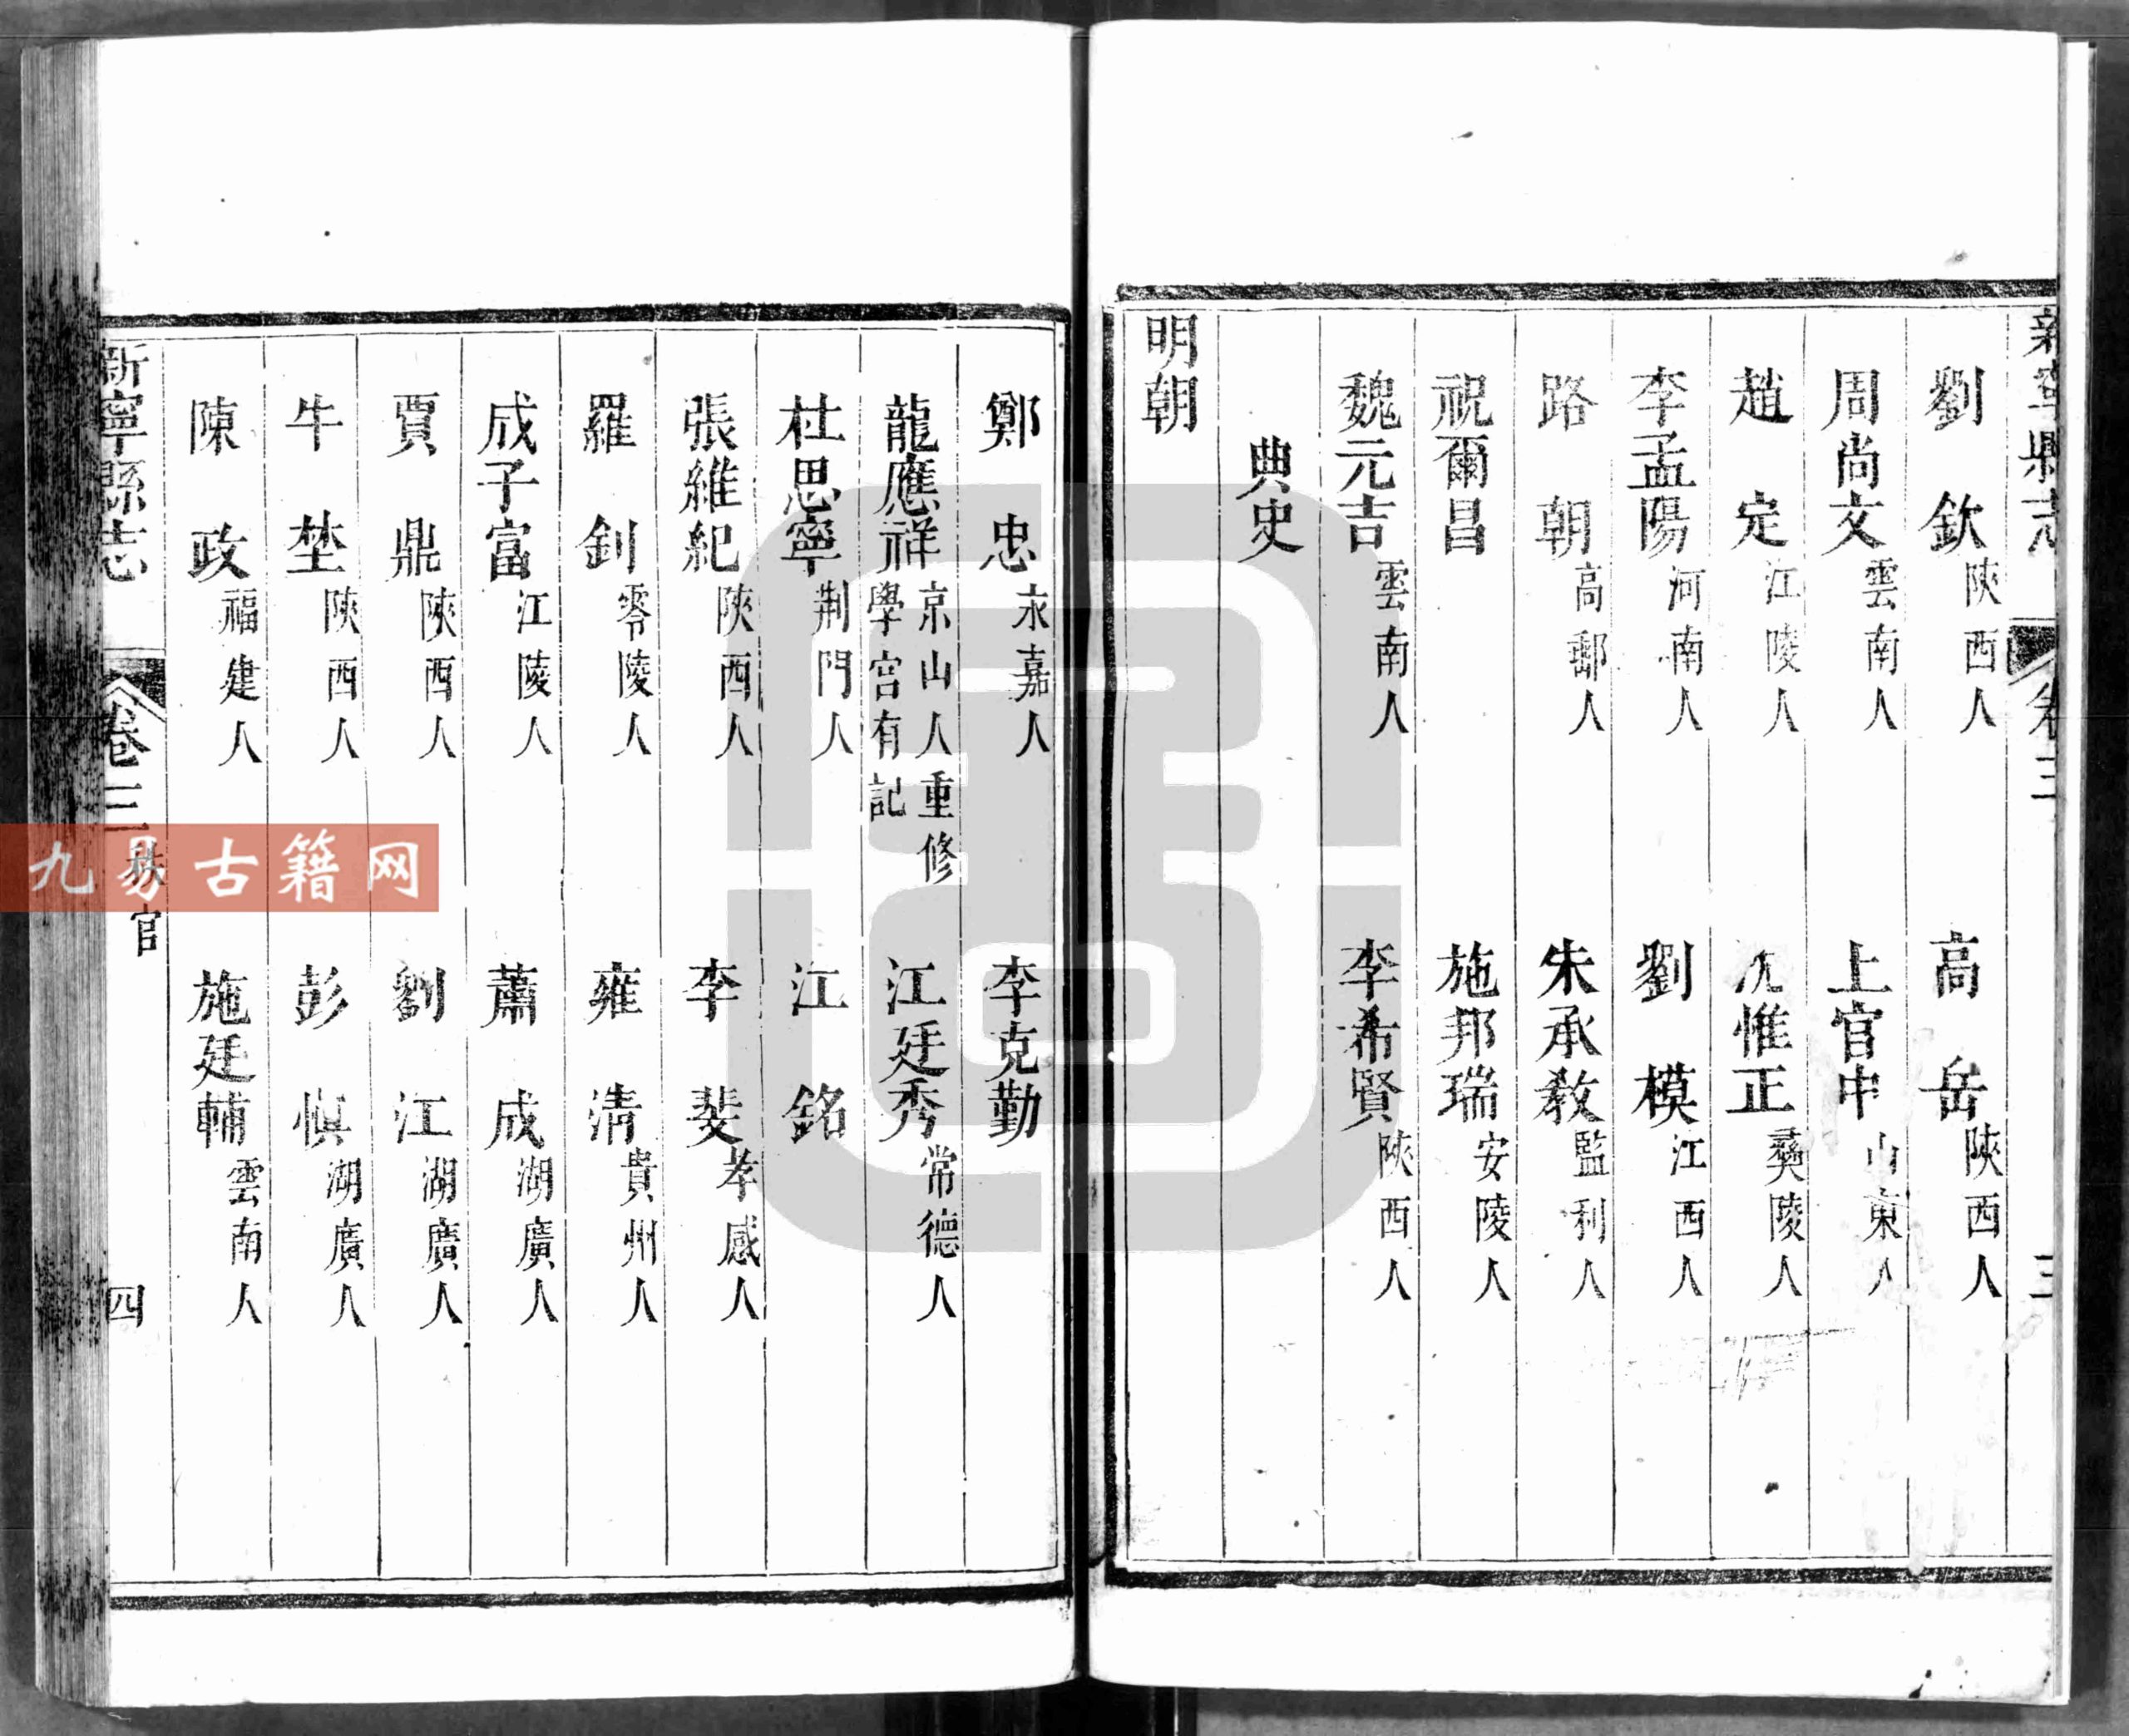 新寧縣志 卷三 三
劉欽 陝西人 高岳 陝西人
周尚文 雲南人 上官申 山東人
趙定 江陵人 惟正 彝陵人
李孟陽 河南人 劉模 江西人
路朝 高郵人 朱承教 監利人
祝爾昌 施邦瑞 安陵人
魏元吉 雲南人 李希賢 陝西人
典史
明朝
鄭忠 永嘉人 李克勤
龍應祥 京山人重修學宮有記 江廷秀 常德人
杜思寧 荆門人 江銘
張維紀 陝西人 李斐 孝感人
羅釗 零陵人 雍清 貴州人
成子富 江陵人 蕭成 湖廣人
賈鼎 陝西人 劉江 湖廣人
牛埜 陝西人 彭慎 湖廣人
陳政 福建人 施廷輔 雲南人
新寧縣志 卷三 秩官 四
九易古籍网